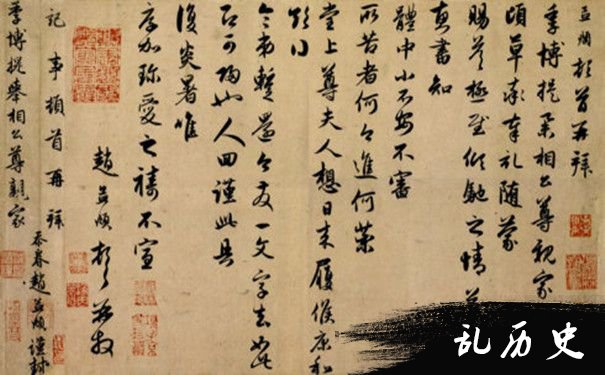 孟頫頓首再拜
季博提舉相公尊親家
頃草率奉札隨蒙
賜答極至傾馳之情
真書知
體中小不安不審
所苦者何今進何藥
堂上尊夫人想日來履候康和
令弟暫還今發一文字去如此
可歸也人回謹此具
復炎暑唯
厚加珍愛之禱不宣
趙孟頫頓首再拜
記事頓首再拜
季博提舉相公尊親家
忝眷趙孟頫謹封
乱历史